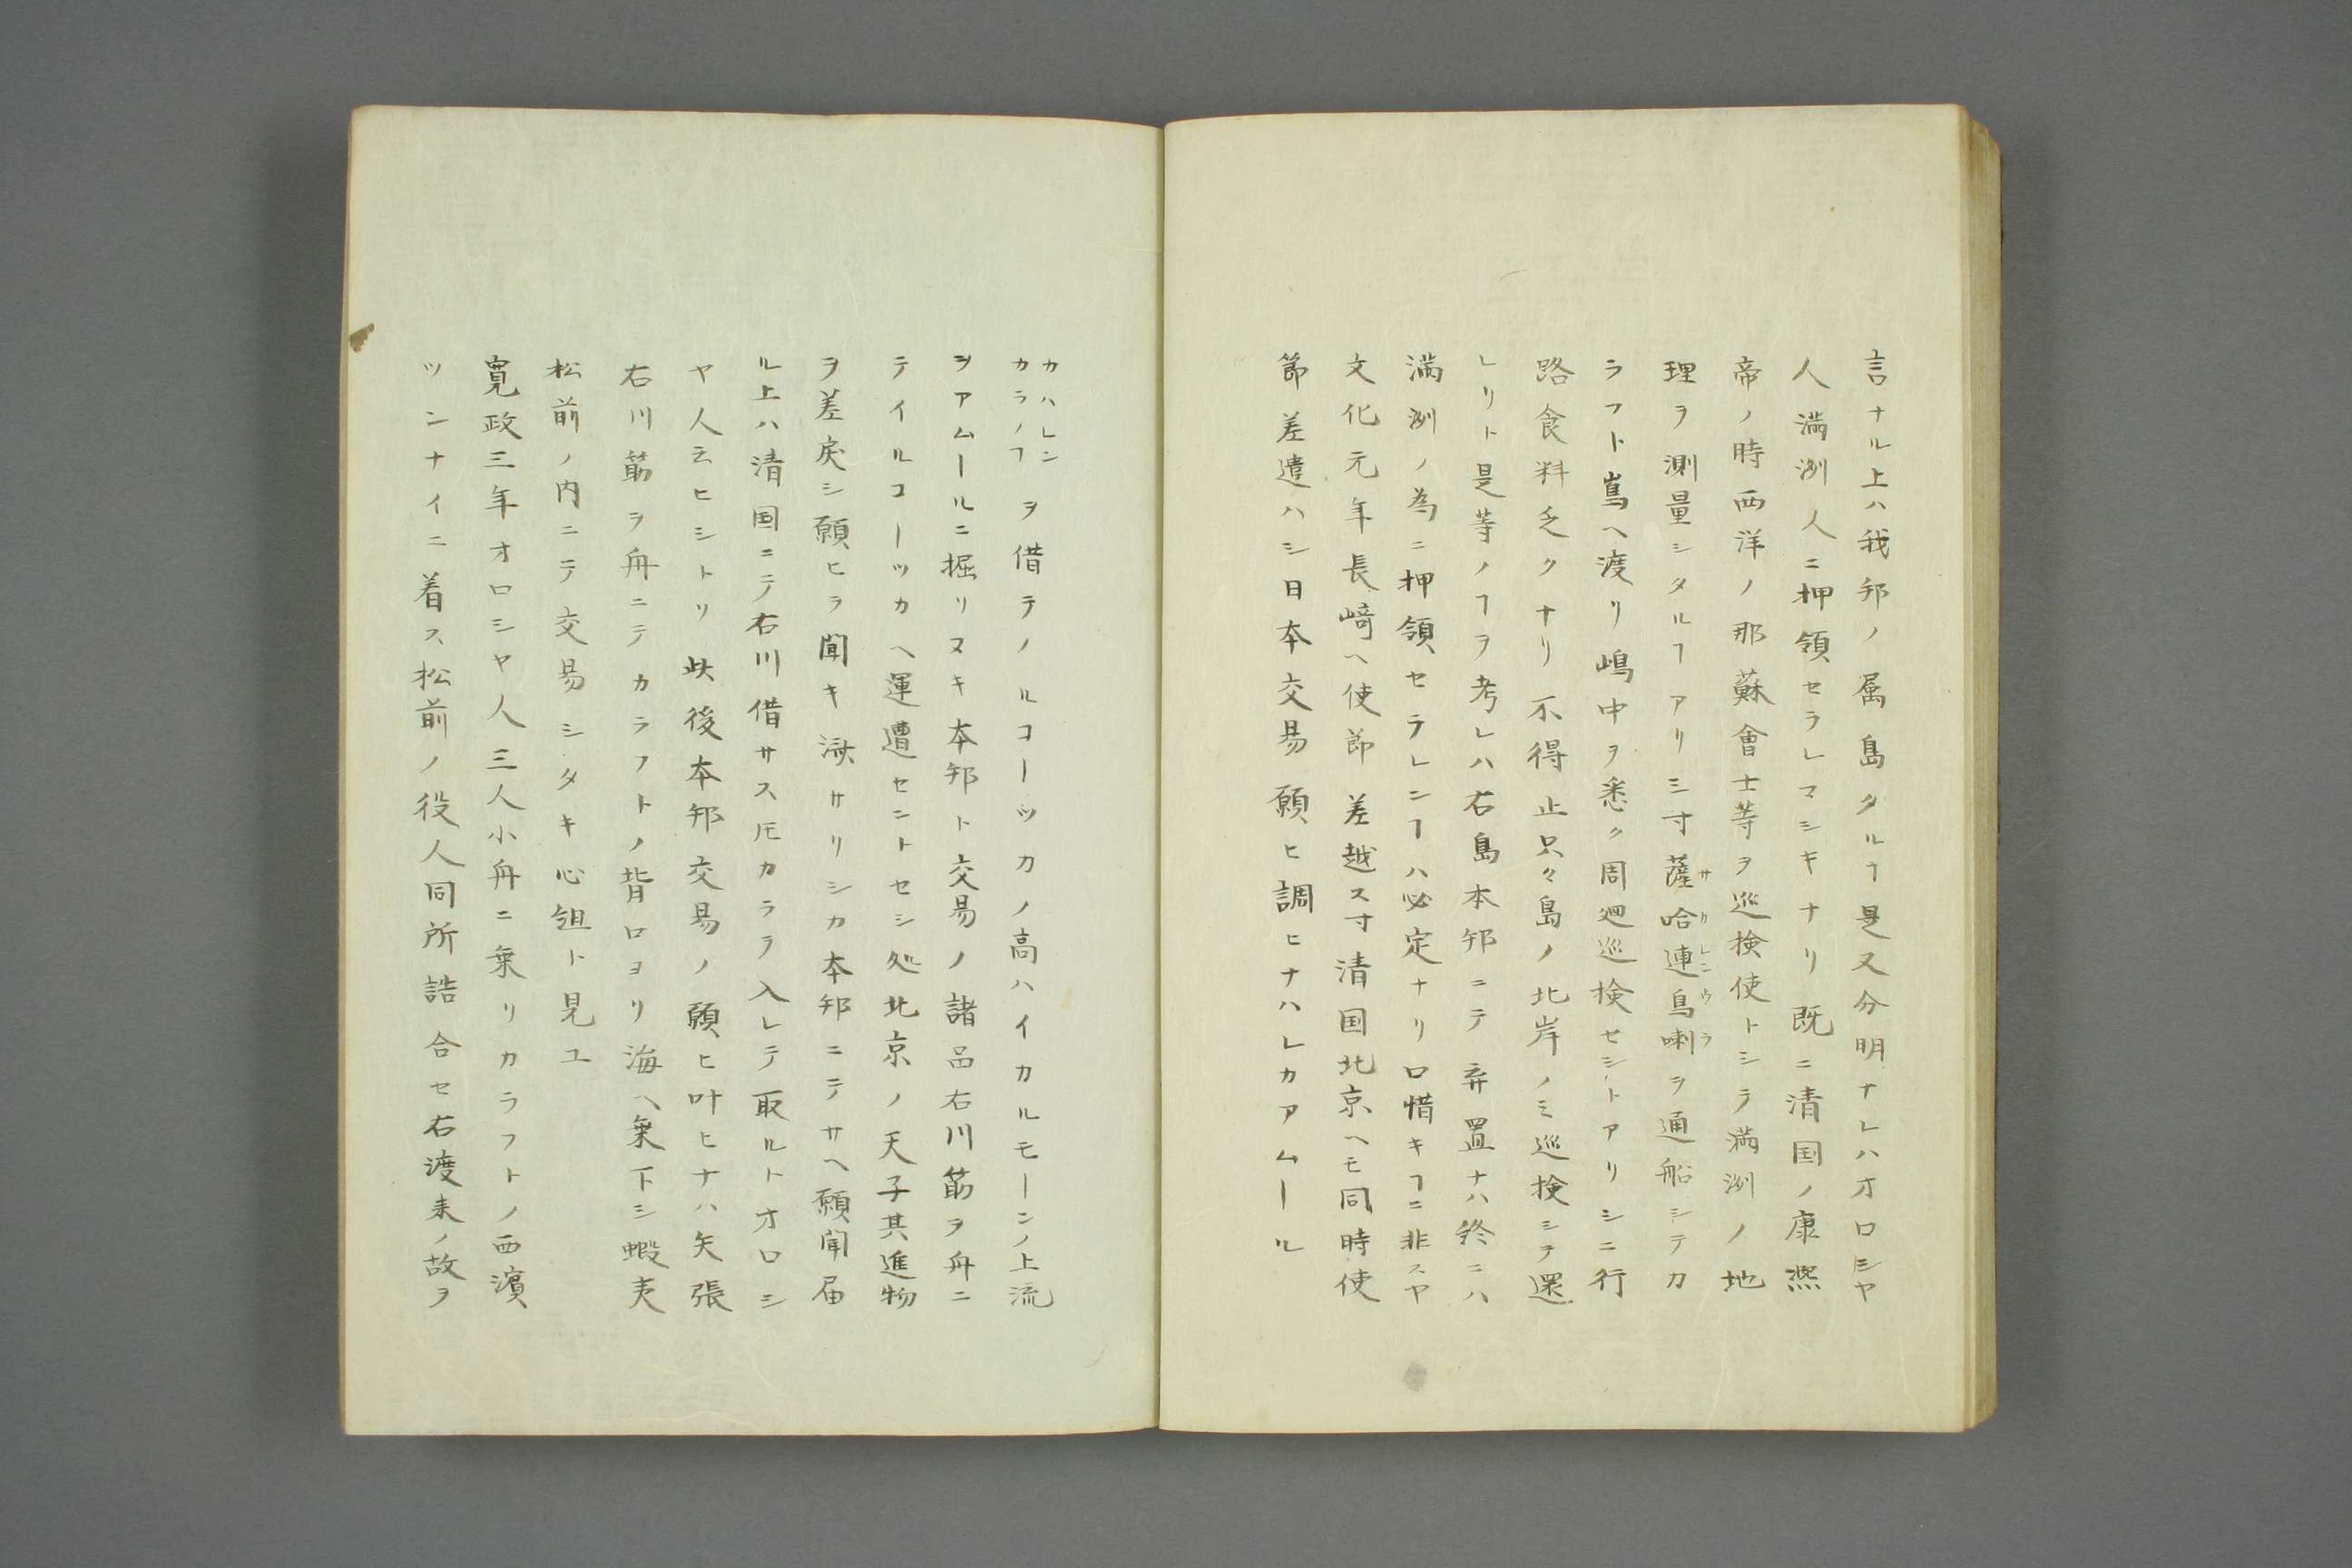 言ナル上ハ我邦ノ属島タルヿ是又分明ナレハオロシヤ
人満洲人ニ押領セラレマシキナリ既ニ清国ノ康熙
帝ノ時西洋ノ那蘇會士等ヲ巡検使トシラ満洲ノ地
理ヲ測量シタルヿアリ三寸薩哈連烏喇ヲ通船シテカ
サカレンウラ
ラフト嶌ヘ渡リ嶋中ヲ悉ク周廻巡検セシトアリシニ行
路食料乏クナリ不得止只々島ノ北岸ノミ巡検シテ還
レリト是等ノヿヲ考レハ右島本邦ニテ弃置ナハ終ニハ
満洲ノ為ニ押領セラレンヿハ必定ナリ口惜キヿニ非スヤ
文化元年長﨑ヘ使節差越ス寸清国北京ヘモ同時使
節差遣ハシ日本交易願ヒ調ヒナハレカアムール
カハレン
カラノフヲ借テノルコーツカノ高ハイカルモーンノ上流
ヲアムールニ掘リヌキ本邦ト交易ノ諸品右川筋ヲ舟ニ
テイルコーツカヘ運遭セントセシ処北京ノ天子其進物
ヲ差戻シ願ヒヲ聞キ済サリシカ本邦ニテサヘ願聞届
ル上ハ清国ニテ右川借サス𪜈カラヲ入レテ取ルトオロシ
ヤ人云ヒシトリ此後本邦交易ノ願ヒ叶ヒナハ矢張
右川筋ヲ舟ニテカラフトノ背ロヨリ海ヘ乗下シ蝦夷
松前ノ内ニテ交易シタキ心組ト見ユ
寛政三年オロシヤ人三人小舟ニ乗リカラフトノ西濱
ツンナイニ着ス松前ノ役人同所詰合セ右渡来ノ故ヲ